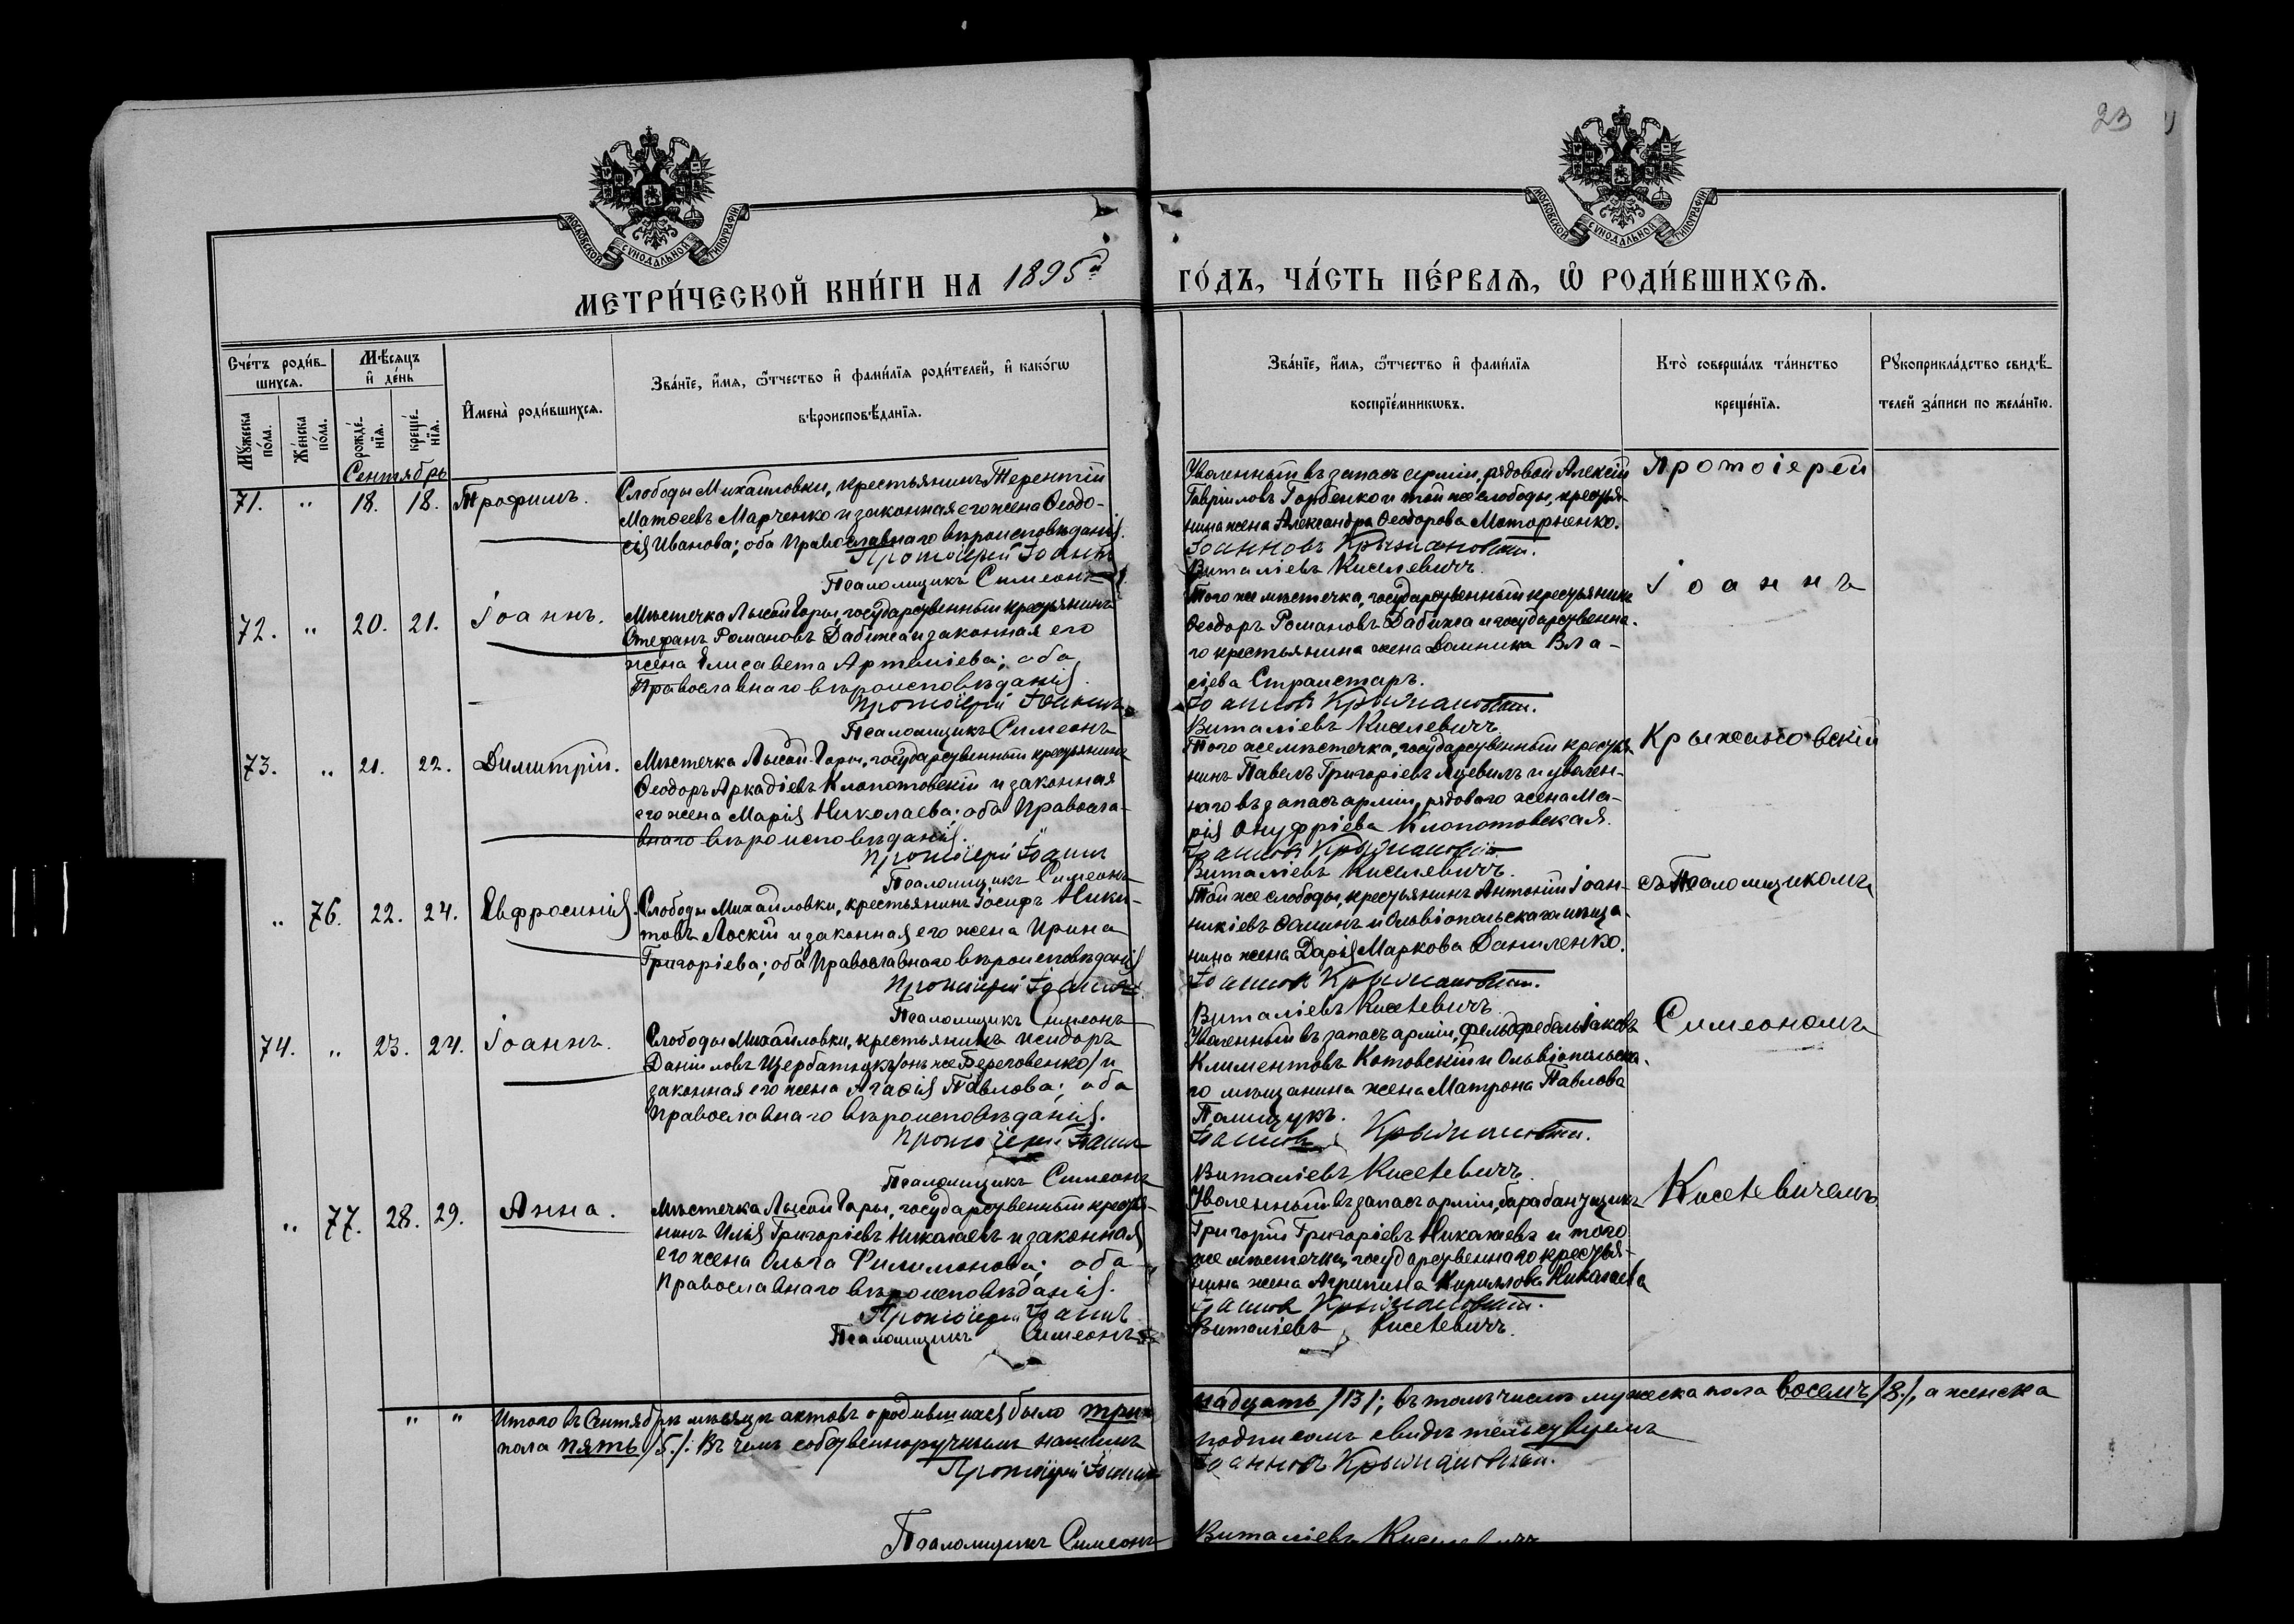 23
МОСКОВСКОЙ СѴНОДАЛЬНОЙ ТИПОГРАФІИ
МОСКОВСКОЙ СѴНОДАЛЬНОЙ ТИПОГРАФІИ
МЕТРИ́ЧЕСКОЙ КНИ́ГИ НА 1895й ГО́ДЪ, ЧА́СТЬ ПЕ́РВАѦ, Ѡ РОДИ́ВШИХСѦ.
Сче́тъ роди́в-
шихсѧ.
Мꙋ́жеска по́ла.
Же́нска по́ла.
Мѣ́сѧцъ
и де́нь
рожде́-
нїѧ.
креще́-
нїѧ.
Имена̀ роди́вшихсѧ.
Зва́нїе, и́мѧ, ѻ́тчество и фами́лїѧ роди́телей, и како́гѡ
вѣроисповѣ́данїѧ.
Зва́нїе, и́мѧ, ѻ́тчество и фами́лїѧ
воспрїе́мникѡвъ.
Кто̀ соверша́лъ та́инство
креще́нїѧ.
Рꙋкоприкла́дство свидѣ́-
телей за́писи по жела́нїю.
Сентябрь
71. " 18. 18. Трофимъ.
Слободы Михайловки, крестьянинъ Терентій
Матѳеевъ Марченко и законная его жена Ѳеодо-
сія Иванова; оба Православнаго вѣроисповѣданія.
Протоіерей Іоаннъ
Псаломщикъ Симеонъ
Уволенный въ запасъ арміи, рядовой Алексій
Гавріиловъ Горбенко и той же слободы, крестья-
нина жена Александра Ѳеодорова Моторненко.
Іоанновъ Крыжановскій.
Виталіевъ Киселевичъ.
Протоіерей
72. " 20. 21. Іоаннъ.
Мѣстечка Лысой Горы, государственный крестьянинъ
Стефанъ Романовъ Дабижа и законная его
жена Елисавета Артеміева; оба
Православнаго вѣроисповѣданія.
Протоіерей Іоаннъ
Псаломщикъ Симеонъ
Того же мѣстечка, государственный крестьянинъ
Ѳеодоръ Романовъ Дабижа и государственна-
го крестьянина жена Домника Вла-
сіева Страистаръ.
Іоанновъ Крыжановскій.
Виталіевъ Киселевичъ.
Іоаннъ
73. " 21. 22. Димитрій.
Мѣстечка Лысой-Горы, государственный крестьянинъ
Ѳеодоръ Аркадіевъ Клопотовскій и законная
его жена Марія Николаева; оба Правосла-
внаго вѣроисповѣданія.
Протоіерей Іоаннъ
Псаломщикъ Симеонъ
Того же мѣстечка, государственный крестья-
нинъ Павелъ Григоріевъ и уволен-
наго въ запасъ арміи, рядового жена Ма-
рія Онуфріева Клопотовская.
Іоанновъ Крыжановскій.
Виталіевъ Киселевичъ.
Крыжановскій
" 76. 22. 24. Евфросинія.
Слободы Михайловки, крестьянинъ Іосифъ Ники-
товъ Лоскій и законная его жена Ирина
Григоріева; оба Православнаго вѣроисповѣданія
Протоіерей Іоаннъ
Псаломщикъ Симеонъ
Той же слободы, крестьянинъ Антоній Іоан-
никіевъ Ѳоминъ и Ольвіопольскаго мѣща-
нина жена Дарія Маркова Даниленко.
Іоанновъ Крыжановскій.
Виталіевъ Киселевичъ.
съ Псаломщикомъ
74. " 23. 24. Іоаннъ.
Слободы Михайловки, крестьянинъ Исидоръ
Даніиловъ Щербатюкъ /онъ же Береговенко/ и
законная его жена Агаѳія Павлова; оба
Православнаго вѣроисповѣданія.
Протоіерей Іоаннъ
Псаломщикъ Симеонъ
Уволенный въ запасъ арміи, фельдфебель Іаковъ
Климентовъ Котовскій и Ольвіопольска-
го мѣщанина жена Матрона Павлова
Палищукъ.
Іоанновъ Крыжановскій.
Виталіевъ Киселевичъ.
Симеономъ
" 77. 28. 29. Анна.
Мѣстечка Лысой Горы, государственный крестья-
нинъ Илія Григоріевъ Николаевъ и законная
его жена Ольга Филимонова; оба
Православнаго вѣроисповѣданія.
Протоіерей Іоаннъ
Псаломщикъ Симеонъ
Уволенный въ запасъ арміи, барабанщикъ
Григорій Григоріевъ Николаевъ и того
же мѣстечка, государственнаго крестья-
нина жена Агрипина Кириллова Николаева
Іоанновъ Крыжановскій.
Виталіевъ Киселевичъ.
Киселевичемъ.
" " Итого въ Сентябрѣ мѣсяцѣ актовъ о родившихся было три-
надцать /13/; въ томъ числѣ мужеска пола восемь /8./, а женска
пола пять /5./. Въ чемъ собственноручнымъ нашимъ
подписомъ свидѣтельствуемъ
Протоіерей Іоаннъ
Іоанновъ Крыжановскій.
Псаломщикъ Симеонъ
Виталіевъ Киселевичъ